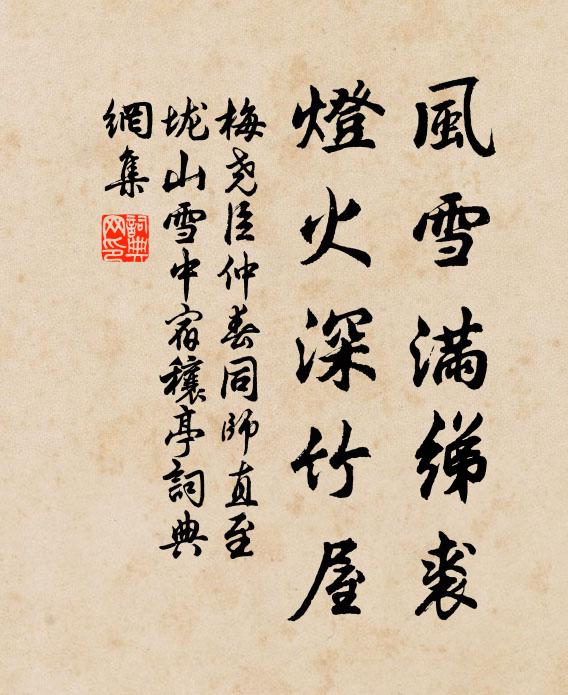 風雪滿綈裘
燈火深竹屋
梅堯臣仲春同師直至
垅山雪中宿穰亭詞典
網集
詞典
网印